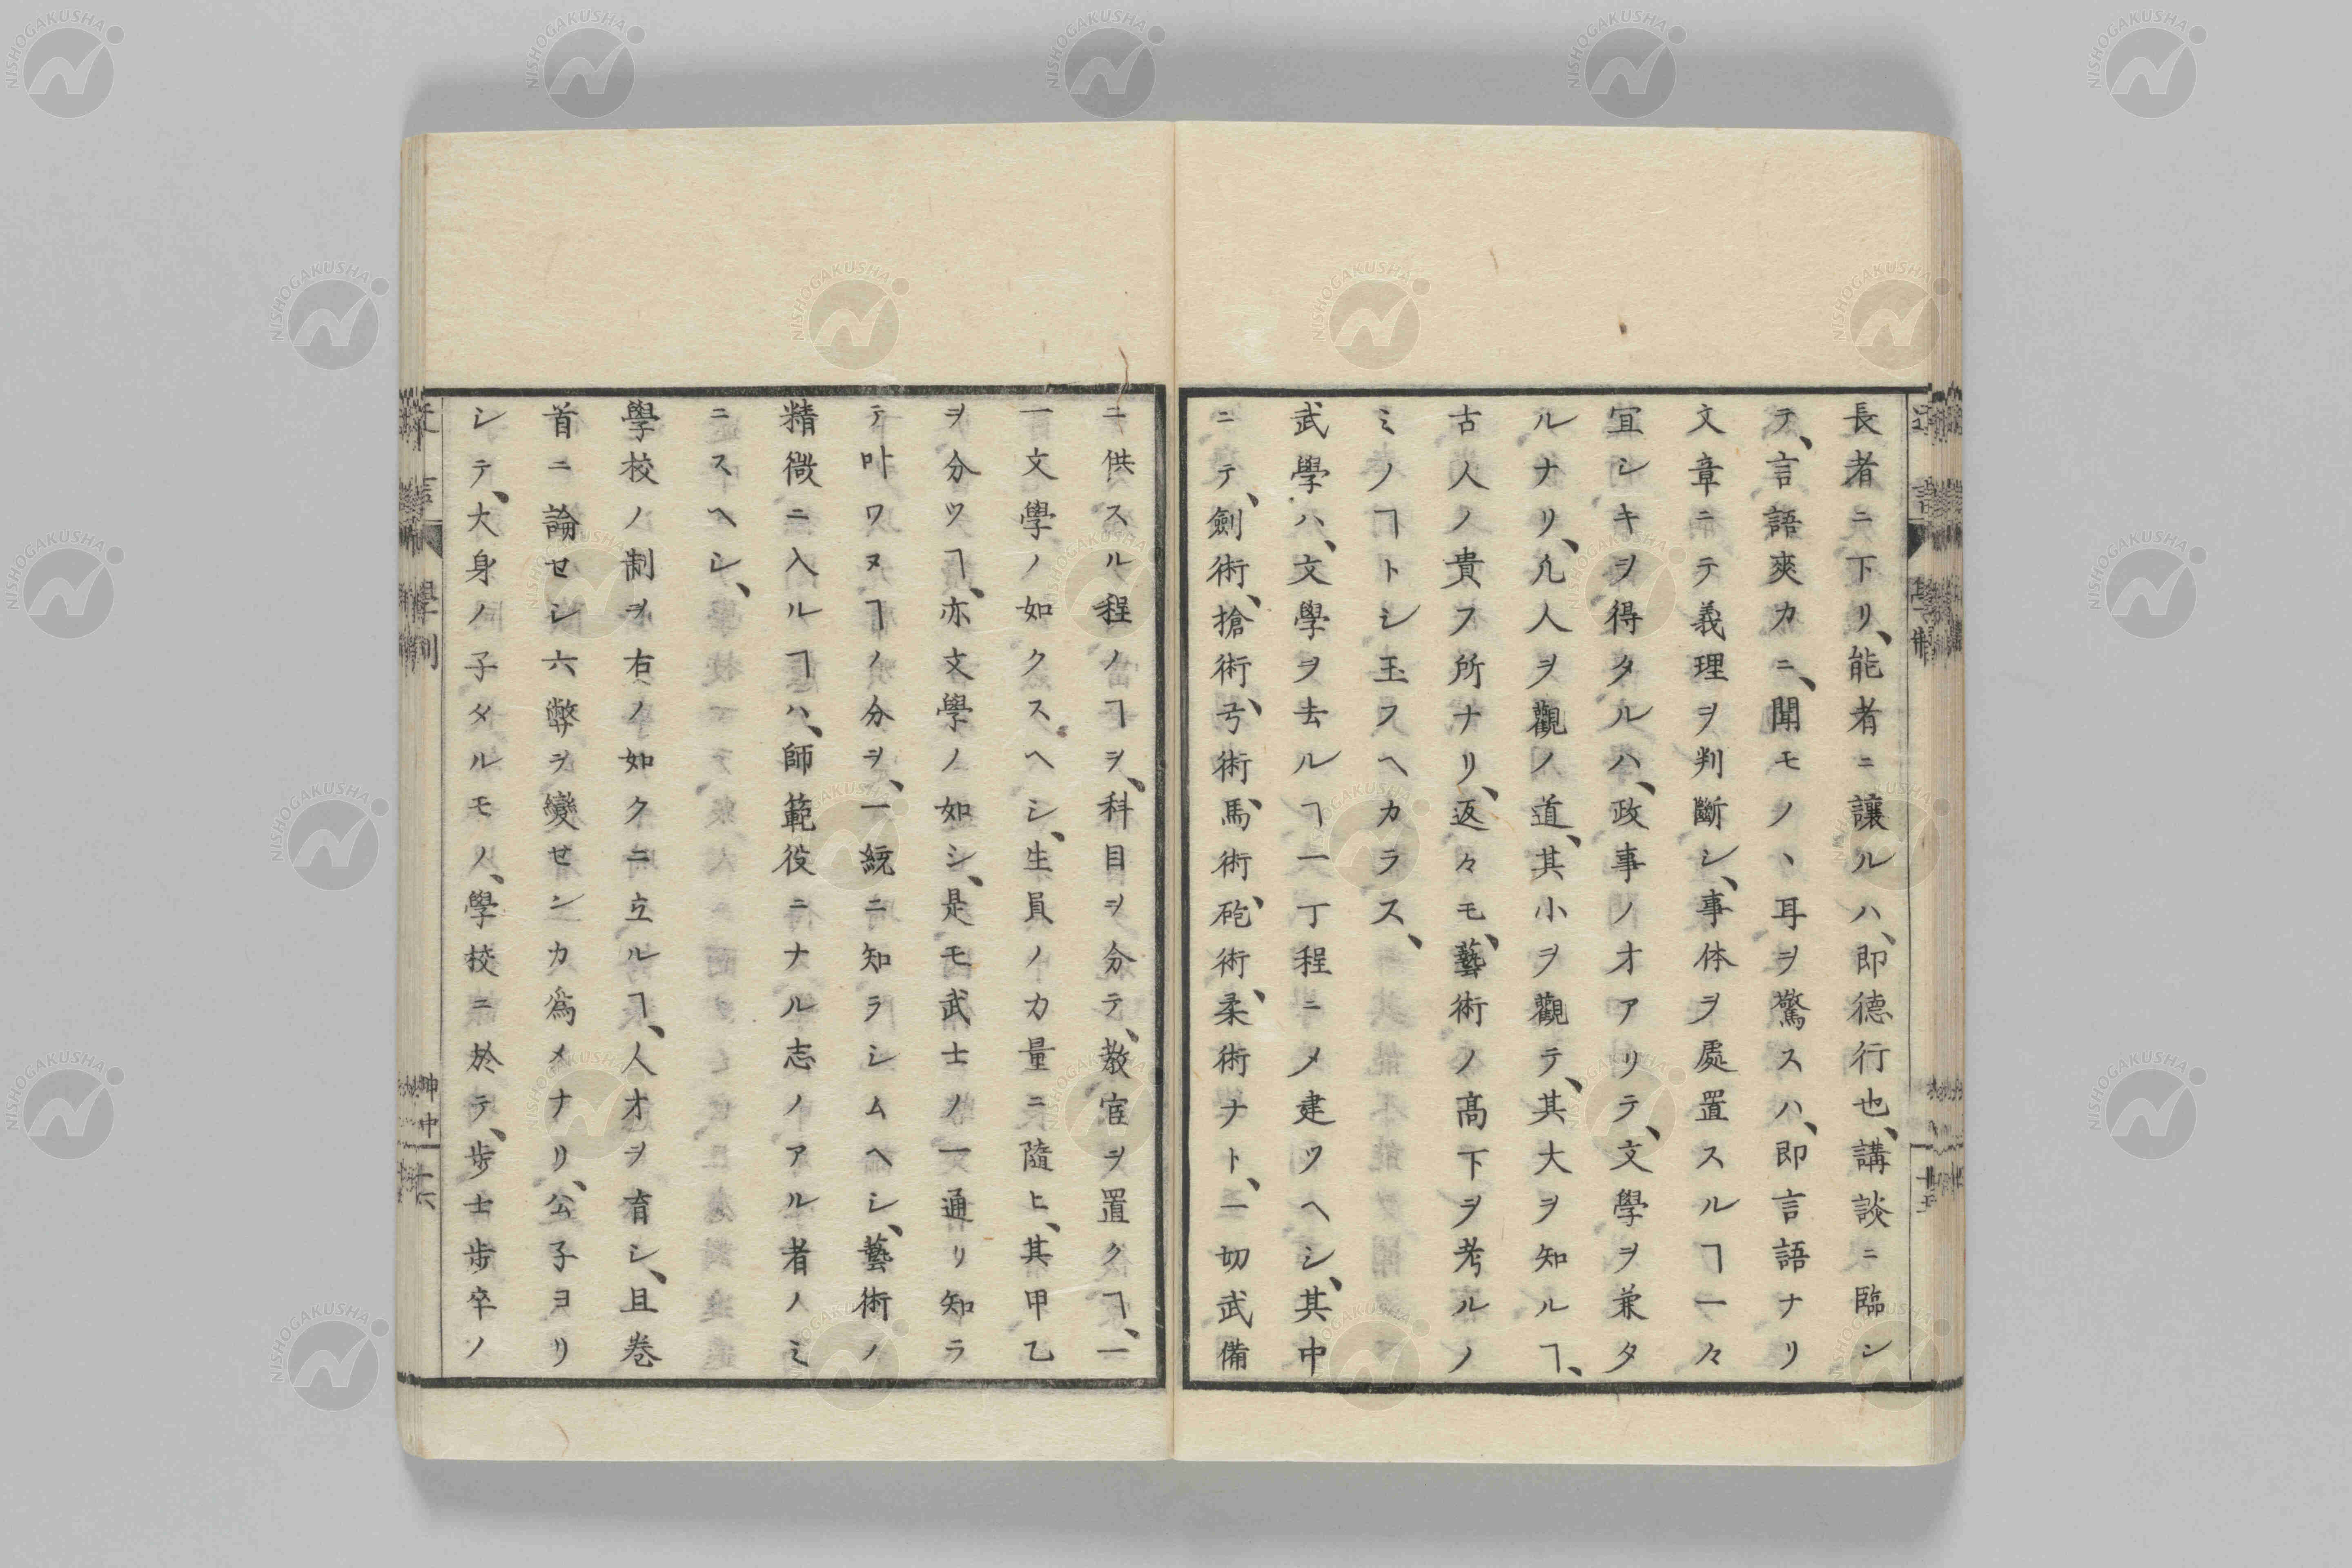 長者ニ下リ、能者ニ讓ルハ、即德行也、講談ニ臨シ
テ、言語爽カニ、聞モノヽ耳ヲ驚スハ、即言語ナリ
文章ニテ義理ヲ判斷シ、事体ヲ處置スルヿ一々
宜シキヲ得タルハ、政事ノオアリテ、文學ヲ兼タ
ルナリ、凢人ヲ觀ノ道、其小ヲ觀テ、其大ヲ知ルヿ、
古人ノ貴フ所ナリ、返々モ、藝術ノ高下ヲ考ルノ
ミノヿトシ玉フヘカラス、
武學ハ、文學ヲ去ルヿ一丁程ニメ建ツヘシ、其中
ニテ、劍術、搶術、弓術、馬術、砲術、柔術ナト、一切武備
ニ供スル程ノヿヲ、科目ヲ分テ、敎官ヲ置クヿ、一
一文學ノ如クスヘシ、生員ノ力量ニ隨ヒ、其甲乙
ヲ分ツヿ、亦文學ノ如シ、是モ武士ノ一通リ知ラ
テ叶ワヌヿノ分ヲ、一統ニ知ラシムヘシ、藝術ノ
精微ニ入ルヿハ、師範役ニナル志ノアル者ノミ
ニスヘシ、
學校ノ制ヲ右ノ如クニ立ルヿ、人才ヲ育シ、且巻
首ニ論セシ六弊ヲ變センカ爲メナリ、公子ヨリ
シテ、大身ノ子タルモノ、學校ニ於テ、歩士歩卒ノ